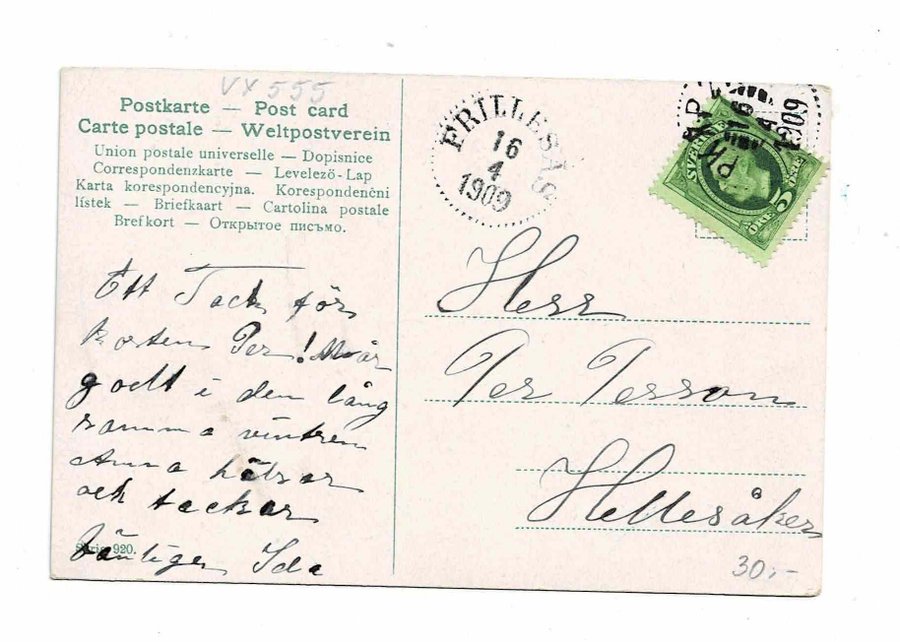 VX 555
Postkarte — Post card
Carte postale — Weltpostverein
Union postale universelle — Dopisnice
Correspondenzkarte — Levelező-Lap
Karta korespondencyjna. Korespondenční
lístek — Briefkaart — Cartolina postale
Brefkort — Открытое письмо.
FRILLESÅS
16
4
1909
PKXP
16
4
1909
SVERIGE
5
ÖRE
Ett Tack för
korten Per! Mår
godt i den lång
samma vintren
Anna hälsar
och tackar
Vänligen Ida
Serie 920.
Herr
Per Persson
Hellesåker
30:-